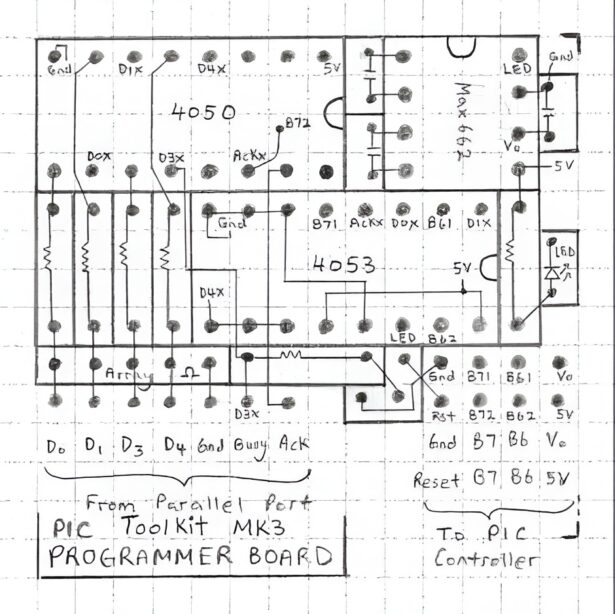 Gnd D1X D4X 5V LED Gnd
4050 B72 Max662
D0X D3X ACKX Vo 5V
Gnd B71 ACKX D0X B61 D1X
4053 5V LED
D4X LED B62
Array Ω Gnd B71 B61 Vo
D3X Rst B72 B62 5V
D0 D1 D3 D4 Gnd Busy Ack Gnd B7 B6 Vo
Reset B7 B6 5V
From Parallel Port
PIC ToolKit MK3 To PIC
PROGRAMMER BOARD Controller